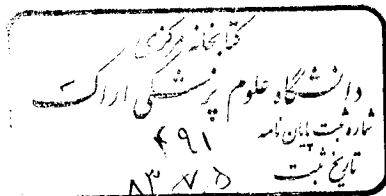 کتابخانه مرکزی
دانشگاه علوم پزشکی اراک
شماره ثبت پایان نامه
۴۹۱
تاریخ ثبت ۸۳,۷,۵